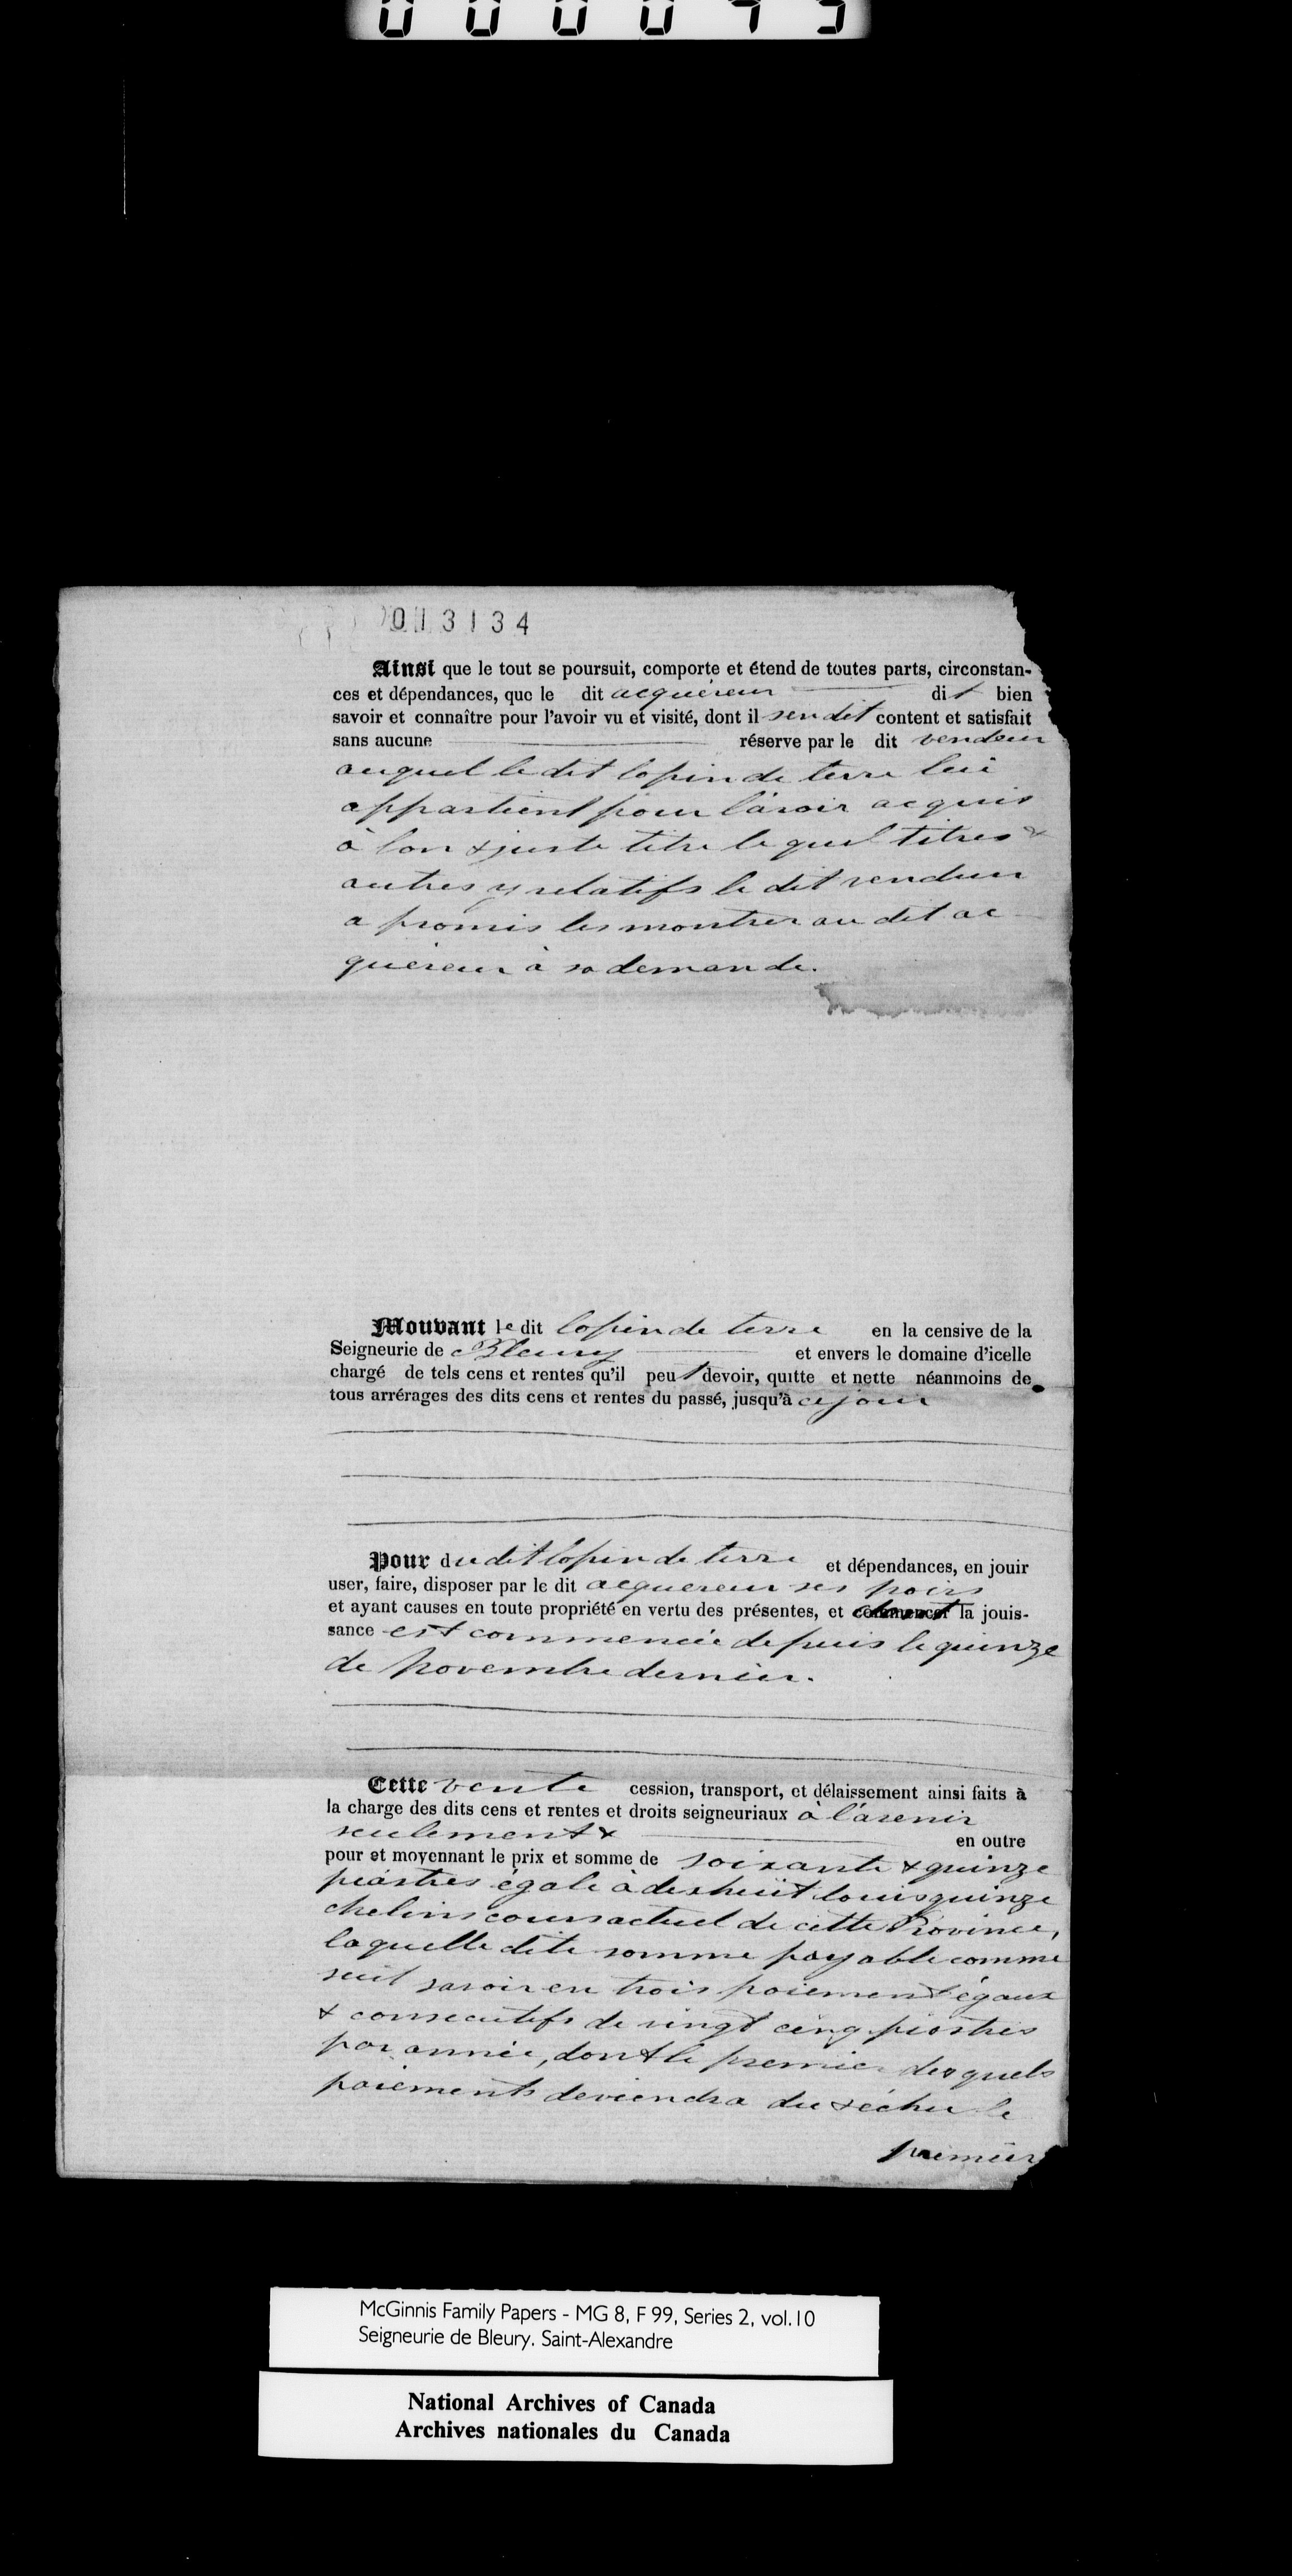 013134
Ainsi que le tout se poursuit, comporte et étend de toutes parts, circonstan-
ces et dépendances, que le dit acquéreur dit bien
savoir et connaître pour l'avoir vu et visité, dont il s'en dit content et satisfait
sans aucune réserve par le dit vendeur
auquel le dit lopin de terre lui
appartient pour l'avoir acquis
à bon & juste titre lequel titres &
autres y relatifs le dit vendeur
a promis les montrer au dit ac-
quéreur à sa demande.
Mouvant le dit lopin de terre en la censive de la
Seigneurie de Bleury et envers le domaine d'icelle
chargé de tels cens et rentes qu'il peut devoir, quitte et nette néanmoins de
tous arrérages des dits cens et rentes du passé, jusqu'à ce jour
Pour du dit lopin de terre et dépendances, en jouir
user, faire, disposer par le dit acquereur ses hoirs
et ayant causes en toute propriété en vertu des présentes, et la jouis-
sance est commencée depuis le quinze
de Novembre dernier.
Cette vente cession, transport, et délaissement ainsi faits à
la charge des dits cens et rentes et droits seigneuriaux à l'avenir
seulement & en outre
pour et moyennant le prix et somme de soixante & quinze
piastres égale à dixhuit louis quinze
chelins cours actuel de cette Province,
laquelle dite somme payable comme
suit savoir en trois paiement égaux
& consecutifs de vingt cinq piastres
par année, dont le premier desquels
paiements deviendra du & échu le
premier
McGinnis Family Papers - MG 8, F 99, Series 2, vol.10
Seigneurie de Bleury. Saint-Alexandre
National Archives of Canada
Archives nationales du Canada